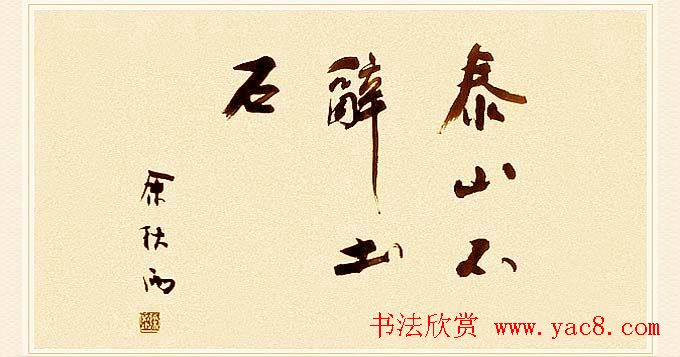 泰山不
辭土
石
余秋雨
书法欣赏 www.yac8.com